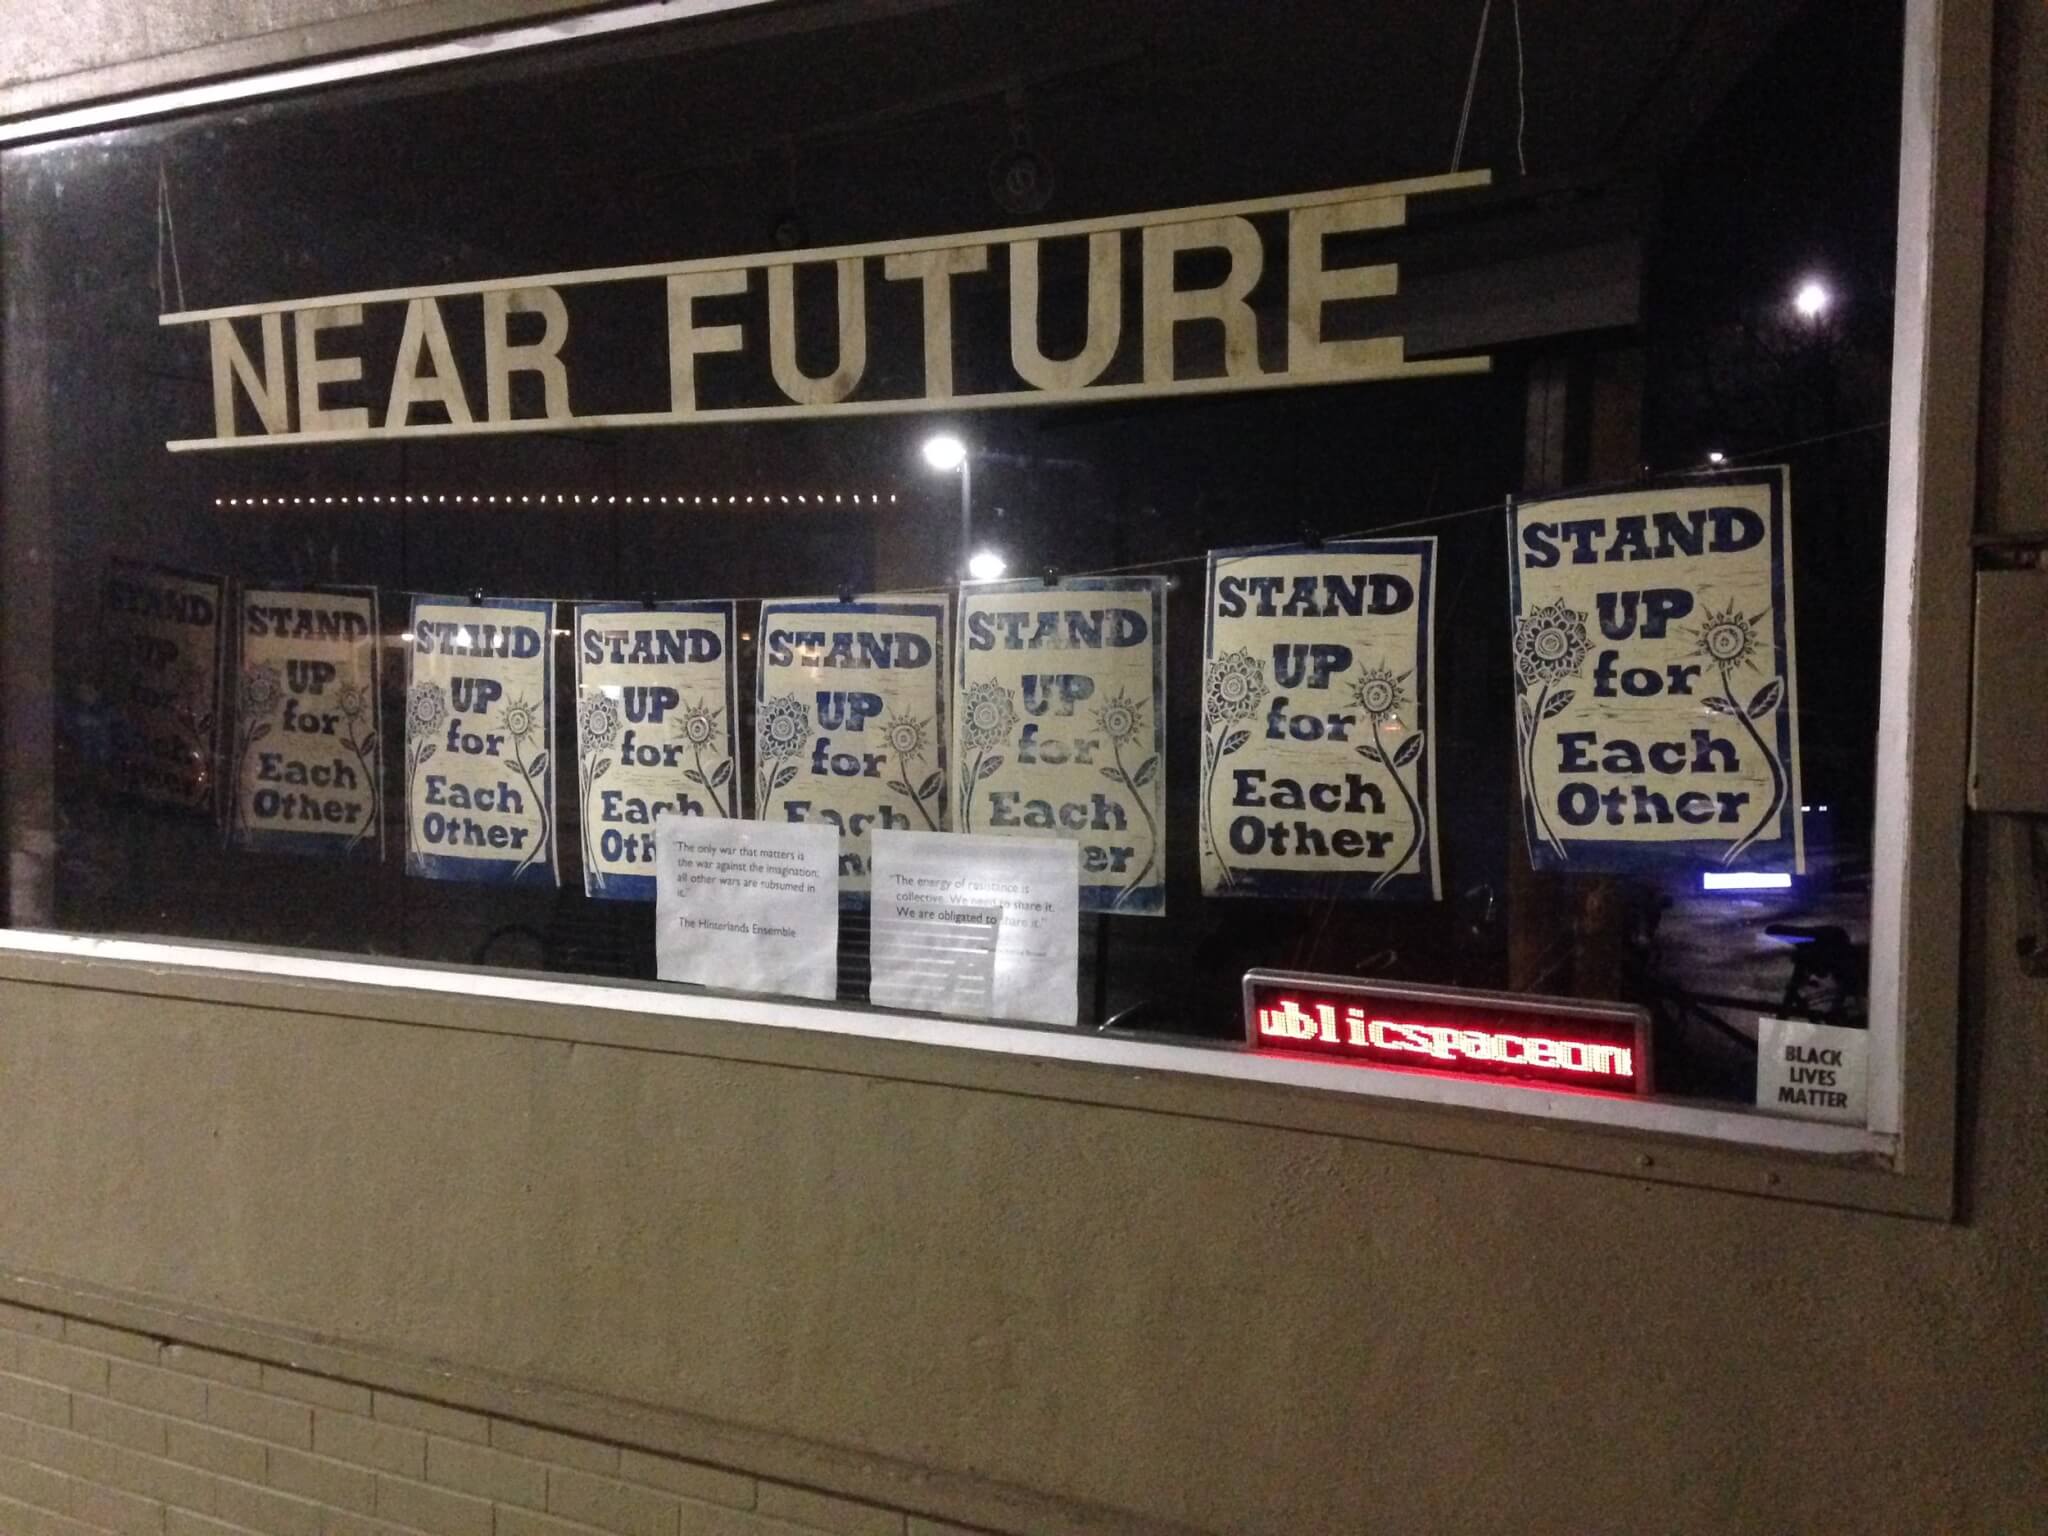 NEAR FUTURE
STAND
UP
for
STAND
UP
for
Each
Other
STAND
UP
for
Each
Other
STAND
UP
for
Each
Oth
STAND
UP
for
Each
STAND
UP
for
Each
er
STAND
UP
for
Each
Other
STAND
UP
for
Each
Other
"The only war that matters is
the war against the imagination;
all other wars are subsumed in
it."
The Hinterlands Ensemble
"The energy of resistance is
collective. We need to share it.
We are obligated to share it."
ublicspaceon
BLACK
LIVES
MATTER